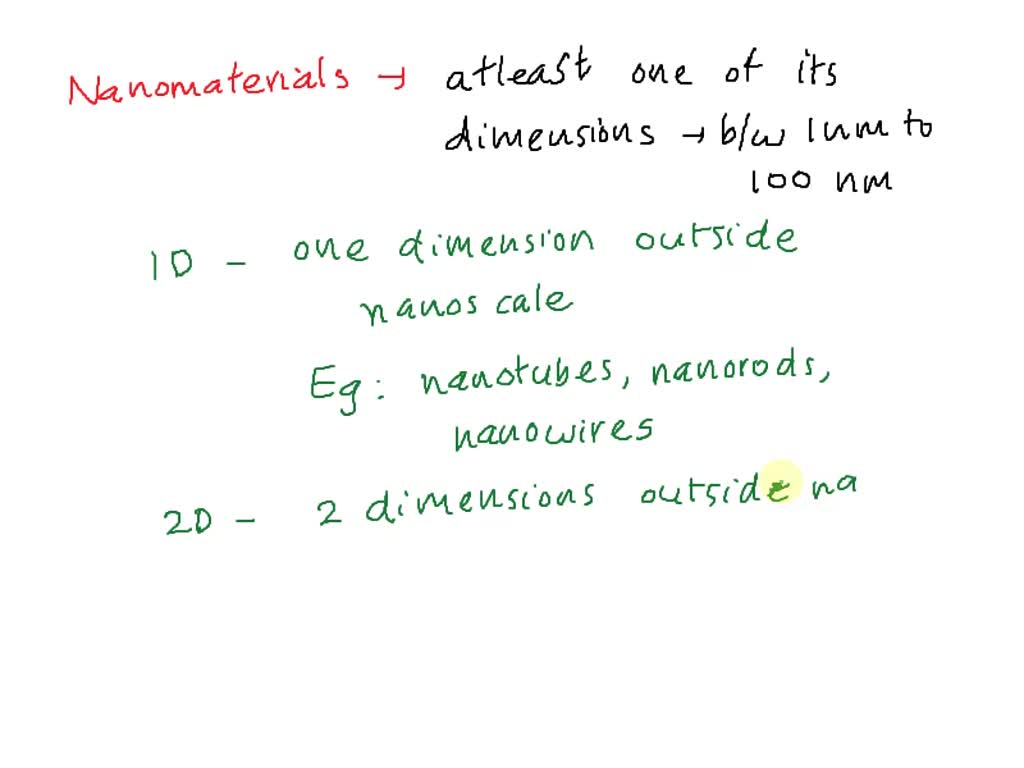 Nanomaterials → atleast one of its
dimensions → b/w 1nm to
100 nm
1D - one dimension outside
nanoscale
Eg: nanotubes, nanorods,
nanowires
2D - 2 dimensions outside na